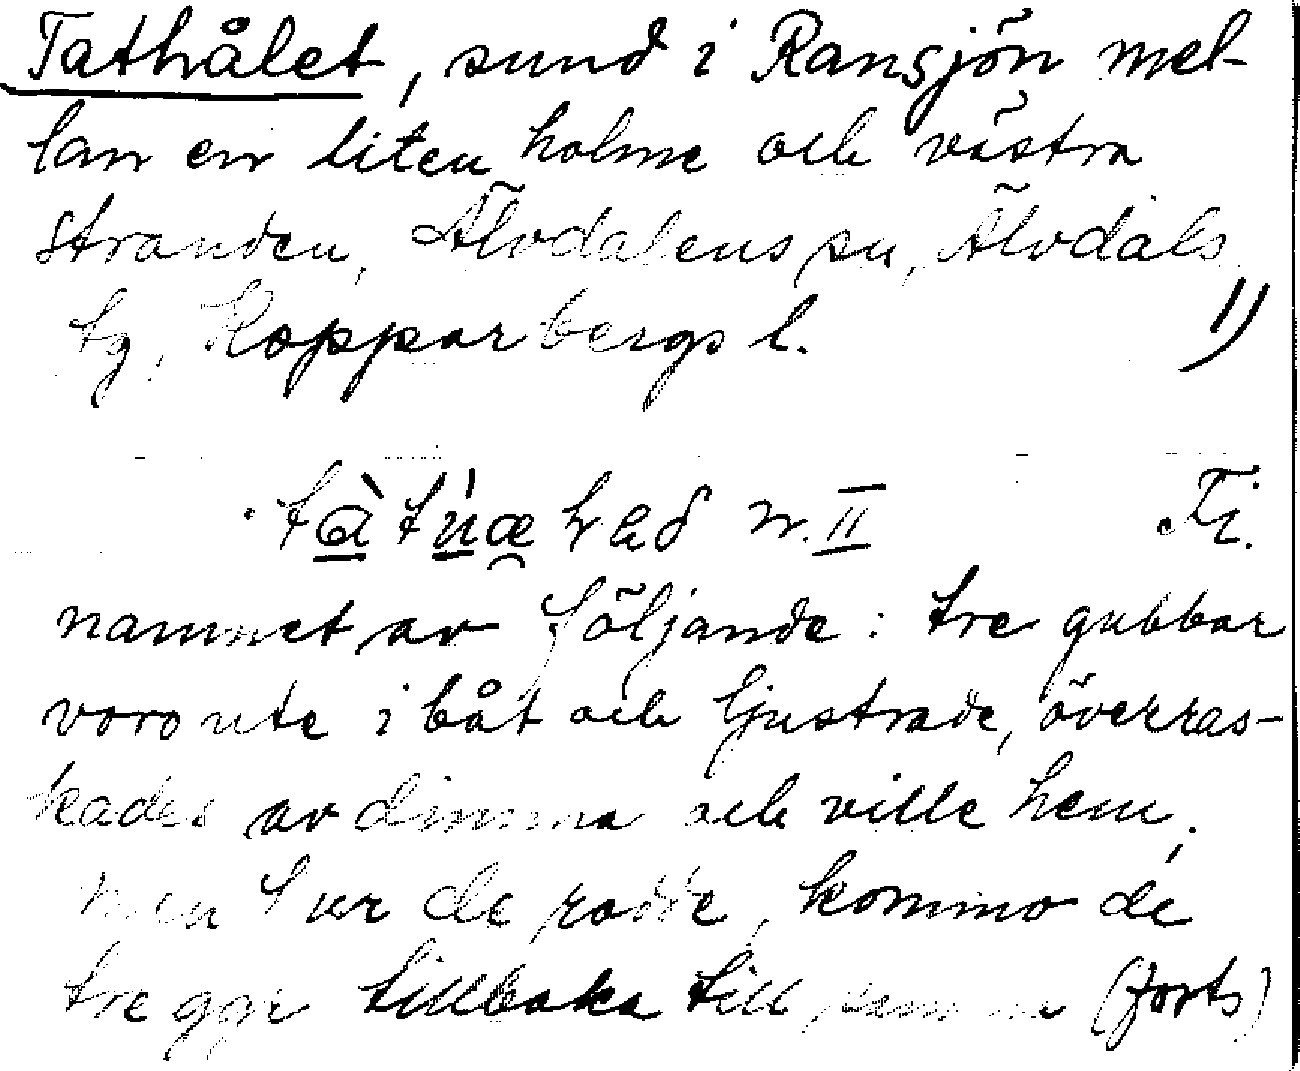 Tathålet, sund i Ransjön mel-
lan en liten holme och västra
stranden, Älvdalens sn, Älvdals
tg, Kopparbergs l. 1)
n. II Fi.
namnet av följande: tre gubbar
voro ute i båt och ljustrade, överras-
kades av dimma och ville hem,
men hur de rodde, kommo de
tre ggr tillbaka till samma (forts)